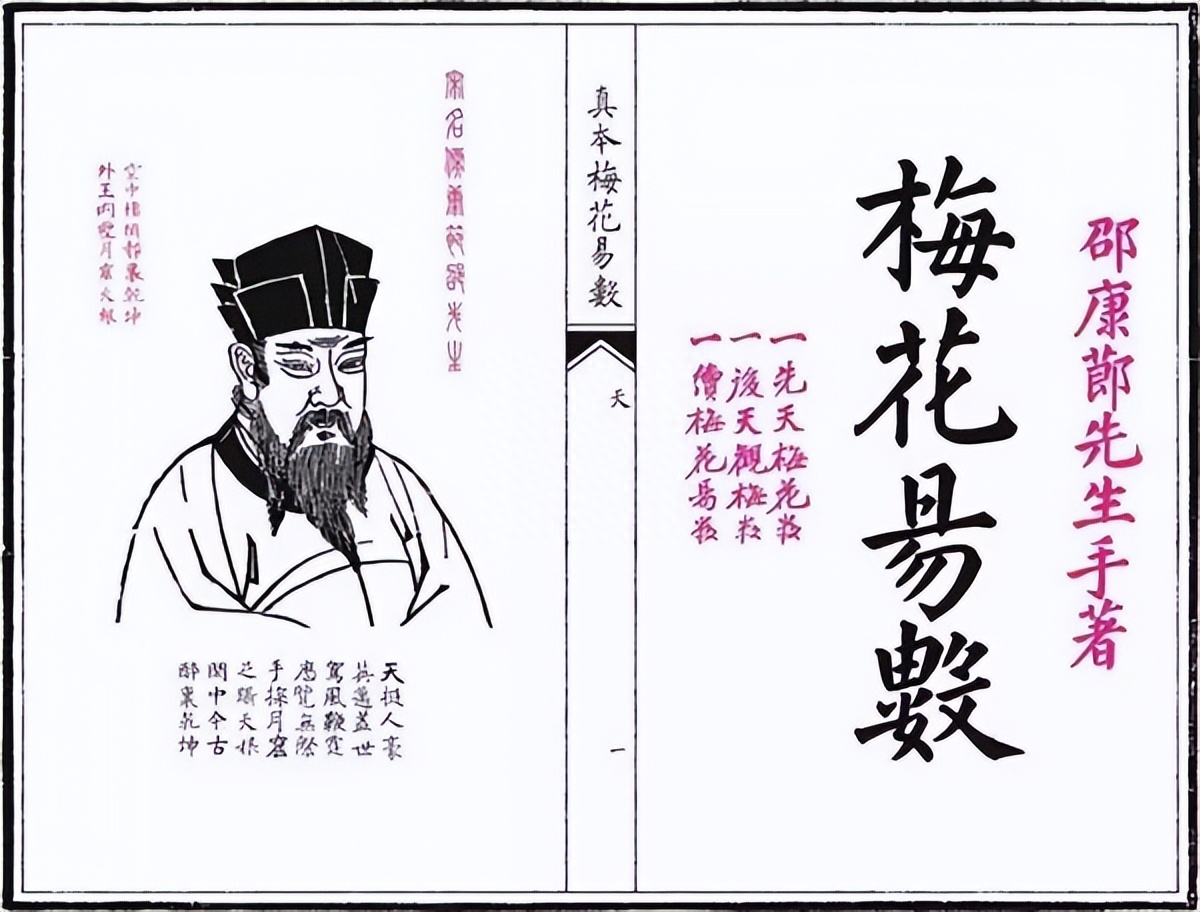 邵康莭先生手著
梅花易數
一先天梅花数
一後天觀梅数
一價梅花易数
真本梅花易數
天
一
宋名儒康節邵先生
空中樓閣都裹乾坤
外王內聖月窟天根
天挺人豪
英邁蓋世
駕風鞭霆
歷覽無際
手探月窟
足躡天根
閒中今古
醉裏乾坤